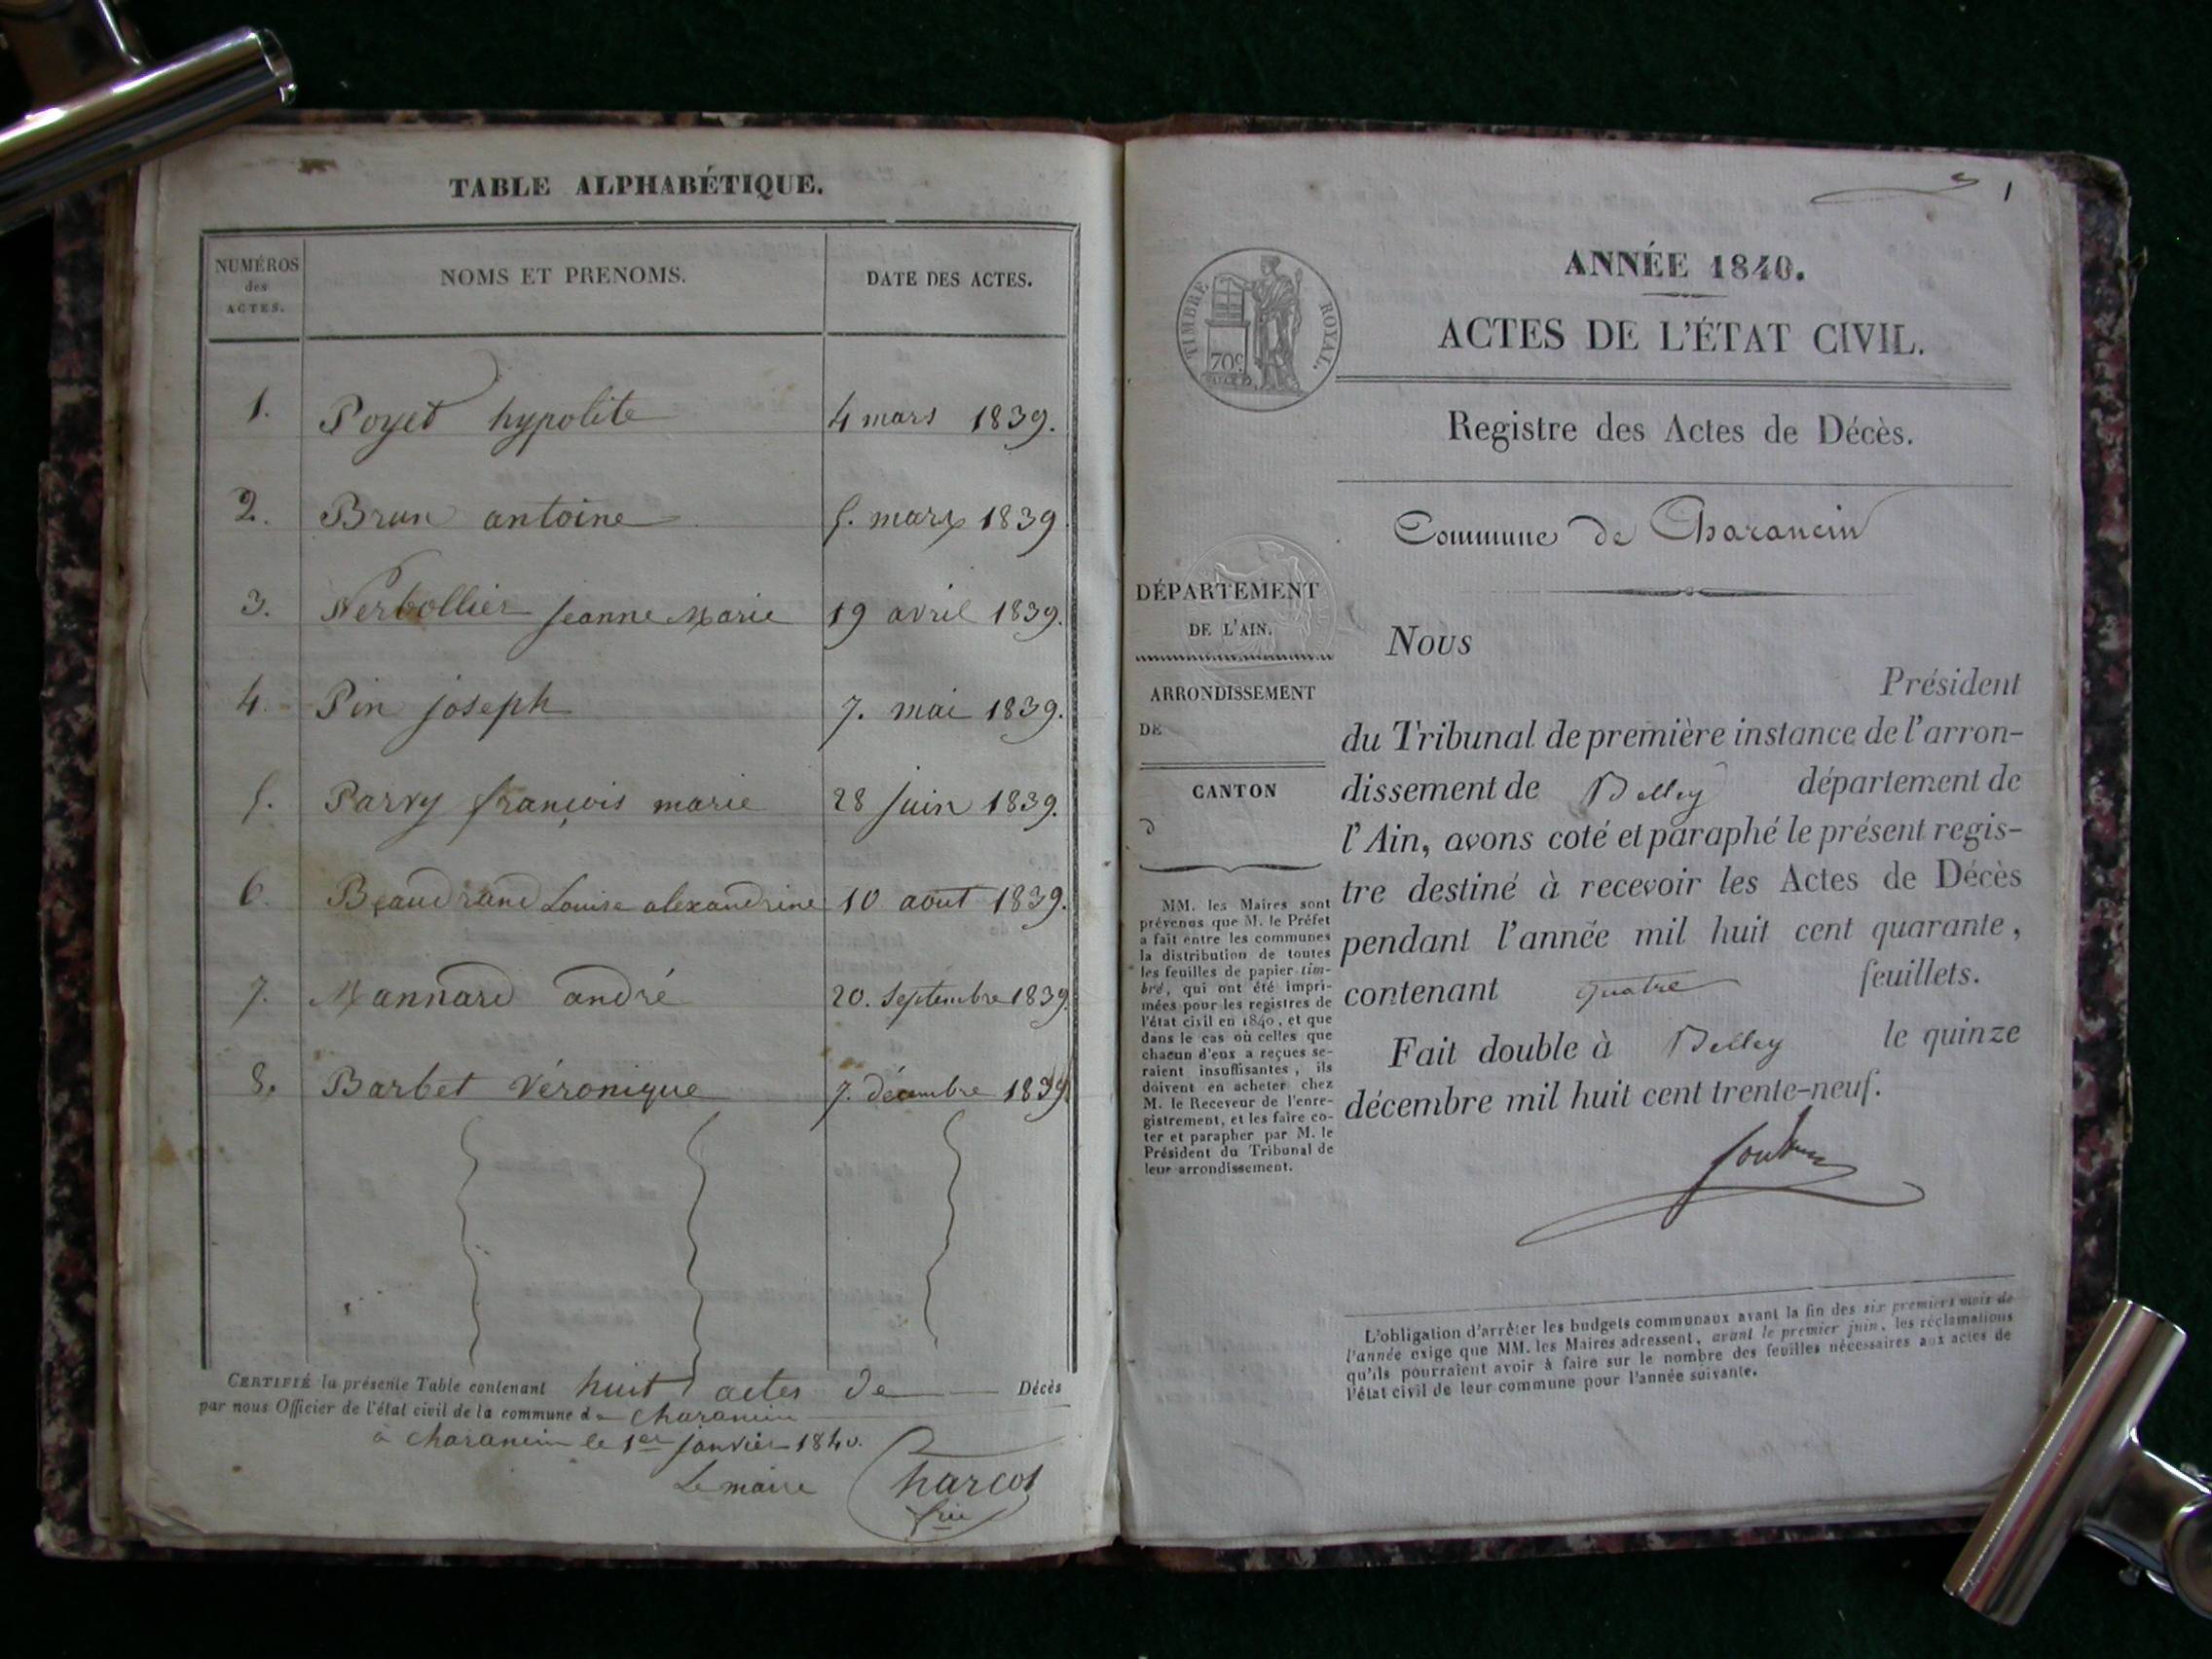 TABLE ALPHABÉTIQUE.
NUMÉROS
des
ACTES.
NOMS ET PRENOMS.
DATE DES ACTES.
1. Poyet hypolite 4 mars 1839.
2. Brun antoine 5. mars 1839
3. Nerbollier jeanne Marie 19 avril 1839.
4. Pin joseph 7. mai 1839.
5. Parvy françois marie 28 juin 1839.
6. Beaudrand Louise alexandrine 10 aout 1839.
7. Mannard andré 20. septembre 1839.
8. Barbet Véronique 7. décembre 1839
CERTIFIÉ la présente Table contenant huit actes de Décès
par nous Officier de l'état civil de la commune de Charancin
à Charancin le 1er janvier 1840.
Le maire Charcot
1
TIMBRE ROYAL.
70c
ANNÉE 1840.
ACTES DE L'ÉTAT CIVIL.
Registre des Actes de Décès.
Commune de Charancin
DÉPARTEMENT
DE L'AIN.
ARRONDISSEMENT
DE
CANTON
d
MM. les Maires sont
prévenus que M. le Préfet
a fait entre les communes
la distribution de toutes
les feuilles de papier tim-
bré, qui ont été impri-
mées pour les registres de
l'état civil en 1840, et que
dans le cas où celles que
chacun d'eux a reçues se-
raient insuffisantes, ils
doivent en acheter chez
M. le Receveur de l'enre-
gistrement, et les faire co-
ter et parapher par M. le
Président du Tribunal de
leur arrondissement.
Nous
Président
du Tribunal de première instance de l'arron-
dissement de Belley département de
l'Ain, avons coté et paraphé le présent regis-
tre destiné à recevoir les Actes de Décès
pendant l'année mil huit cent quarante,
contenant quatre feuillets.
Fait double à Belley le quinze
décembre mil huit cent trente-neuf.
L'obligation d'arrêter les budgets communaux avant la fin des six premiers mois de
l'année exige que MM. les Maires adressent, avant le premier juin, les réclamations
qu'ils pourraient avoir à faire sur le nombre des feuilles nécessaires aux actes de
l'état civil de leur commune pour l'année suivante.